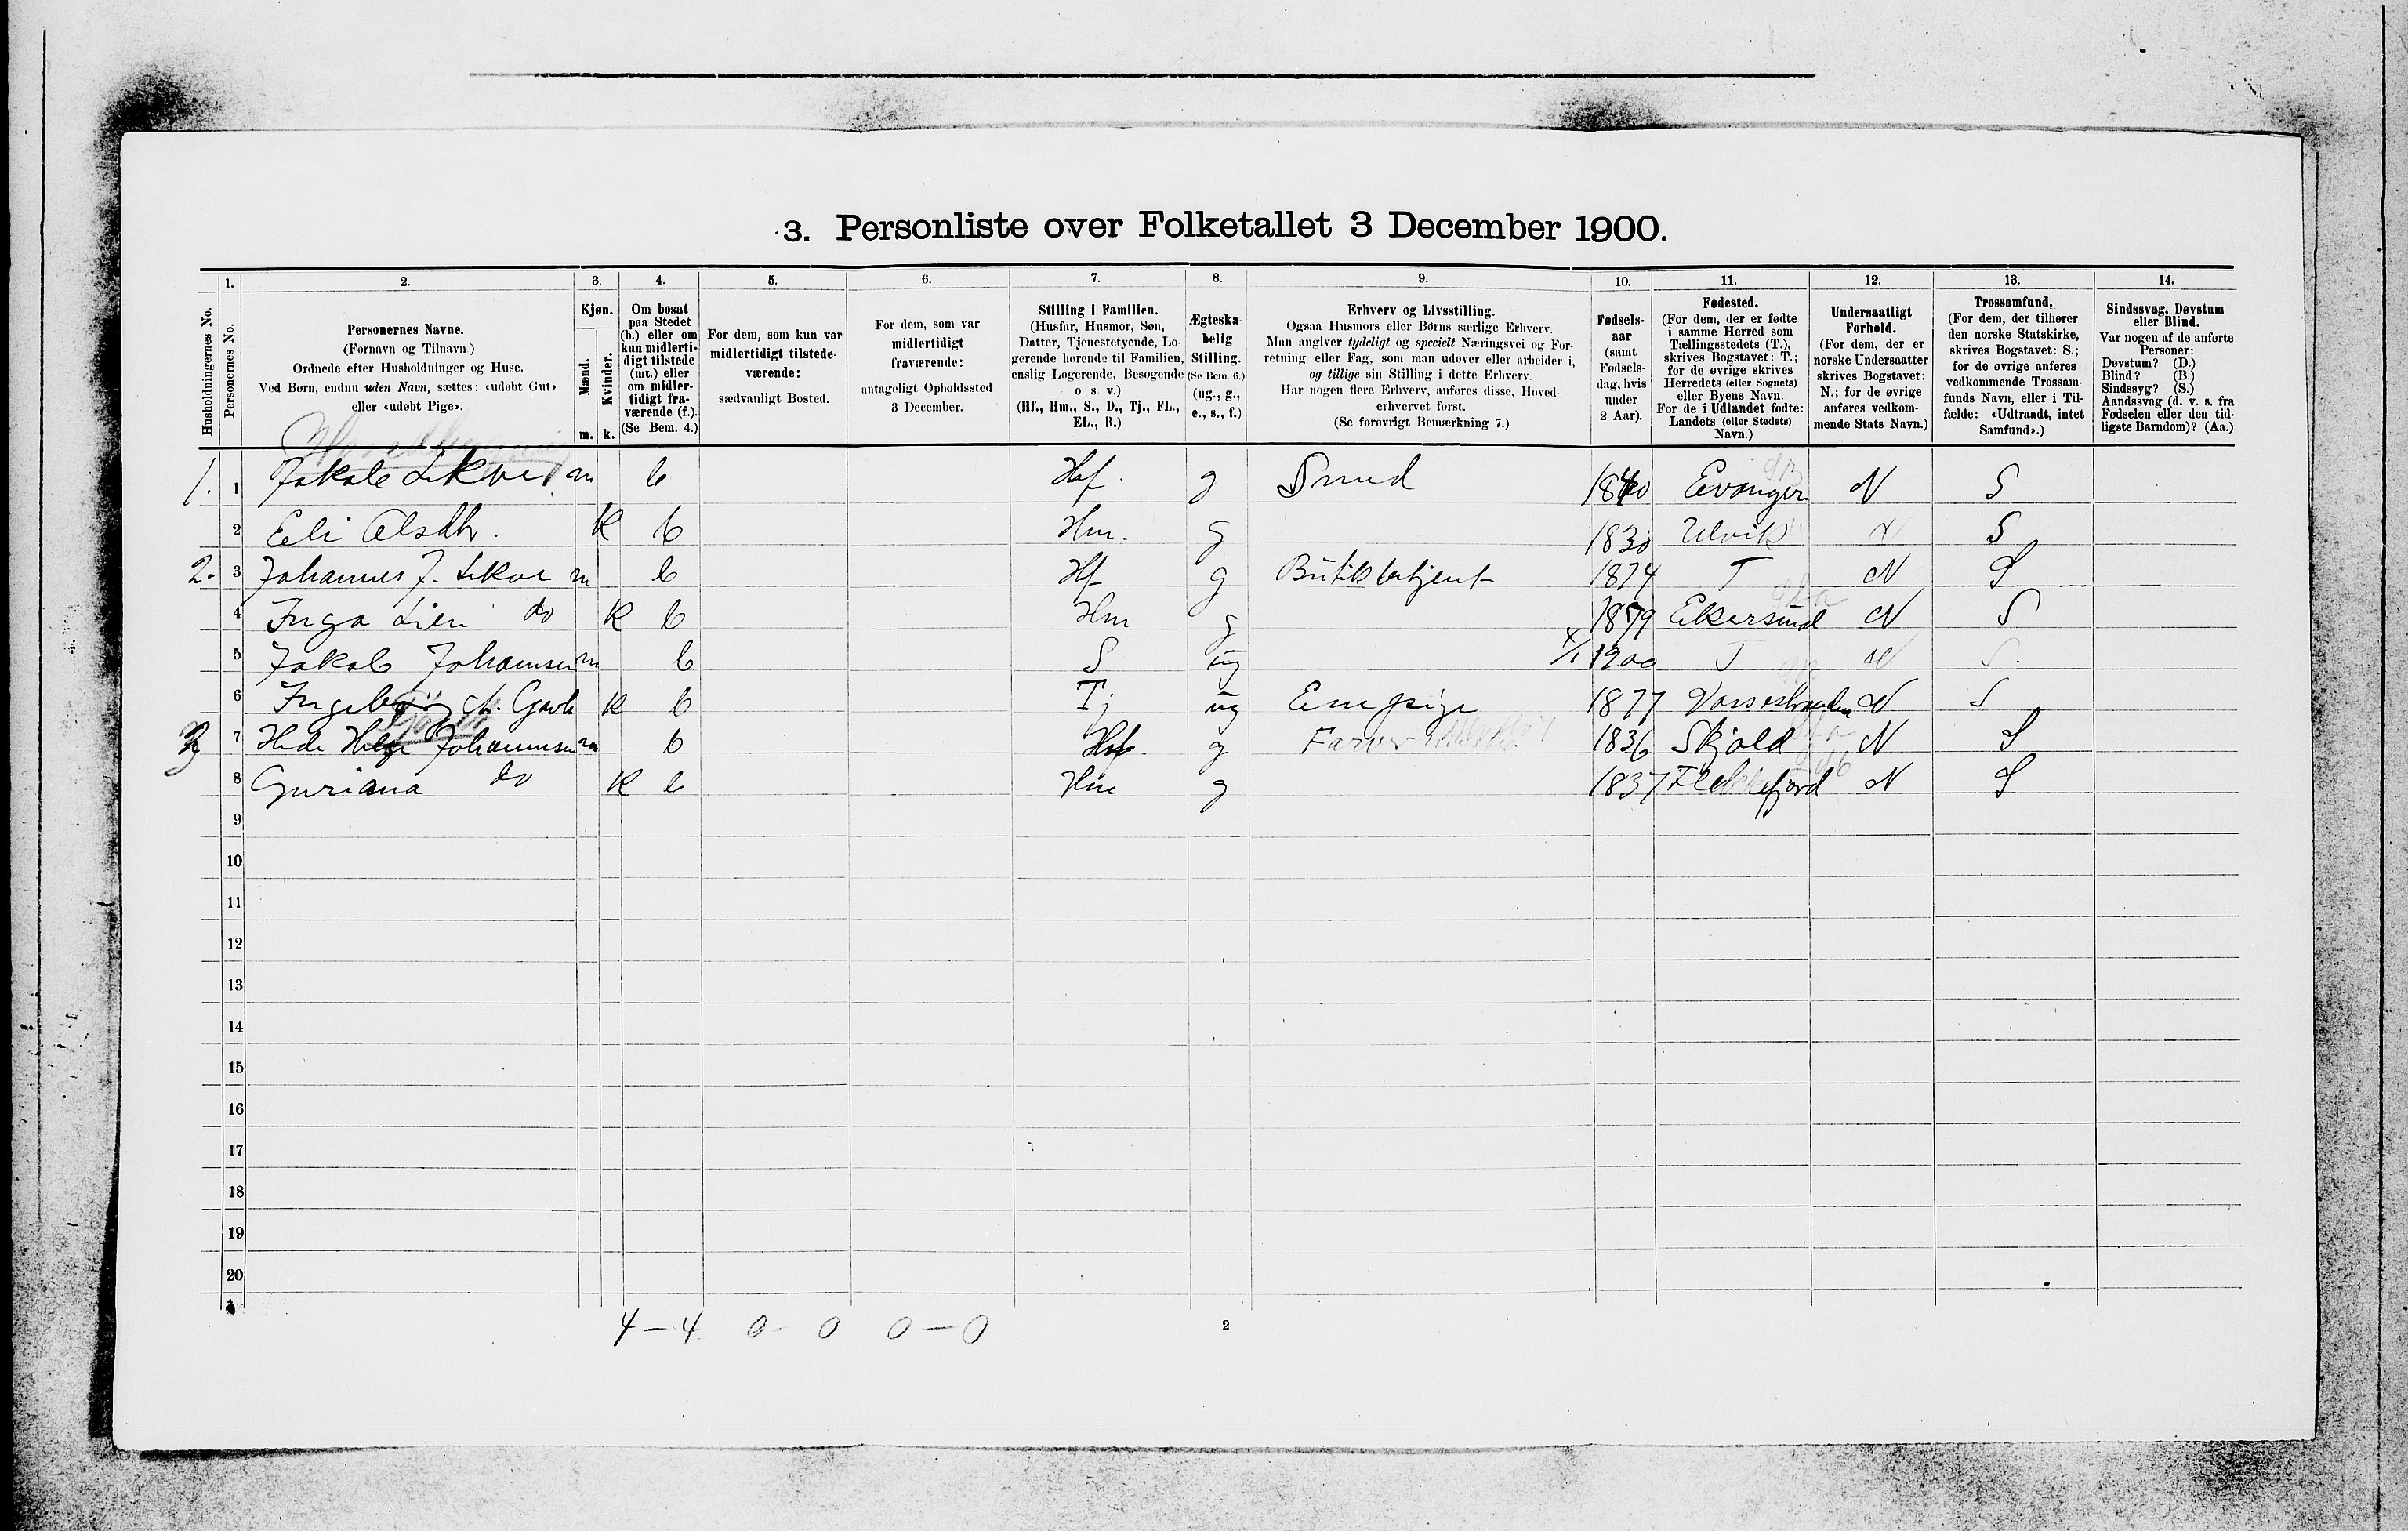 3. Personliste over Folketallet 3 December 1900.
1. 2. 3. 4. 5. 6. 7. 8. 9. 10. 11. 12. 13. 14.
Husholdningernes No.
Personernes No.
Personernes Navne.
(Fornavn og Tilnavn)
Ordnede efter Husholdninger og Huse.
Ved Børn, endnu uden Navn, sættes: «udøbt Gut»
eller «udøbt Pige».
Kjøn.
Mænd.
Kvinder.
m. k.
Om bosat
paa Stedet
(b.) eller om
kun midlerti-
digt tilstede
(mt.) eller
om midler-
tidigt fra-
værende (f.).
(Se Bem. 4.)
For dem, som kun var
midlertidigt tilstede-
værende:
sædvanligt Bosted.
For dem, som var
midlertidigt
fraværende:
antageligt Opholdssted
3 December.
Stilling i Familien.
(Husfar, Husmor, Søn,
Datter, Tjenestetyende, Lo-
gerende hørende til Familien,
enslig Logerende, Besøgende
o. s. v.)
(Hf., Hm., S., D., Tj., FL.,
EL., B.)
Ægteska-
belig
Stilling.
(Se Bem. 6.)
(ug., g.,
e., s., f.)
Erhverv og Livsstilling.
Ogsaa Husmors eller Børns særlige Erhverv.
Man angiver tydeligt og specielt Næringsvei og For-
retning eller Fag, som man udøver eller arbeider i,
og tillige sin Stilling i dette Erhverv.
Har nogen flere Erhverv, anføres disse, Hoved-
erhvervet først.
(Se forøvrigt Bemærkning 7.)
Fødsels-
aar
(samt
Fødsels-
dag, hvis
under
2 Aar).
Fødested.
(For dem, der er fødte
i samme Herred som
Tællingsstedets (T.),
skrives Bogstavet: T.;
for de øvrige skrives
Herredets (eller Sognets)
eller Byens Navn.
For de i Udlandet fødte:
Landets (eller Stedets)
Navn.)
Undersaatligt
Forhold.
(For dem, der er
norske Undersaatter
skrives Bogstavet:
N.; for de øvrige
anføres vedkom-
mende Stats Navn.)
Trossamfund.
(For dem, der tilhører
den norske Statskirke,
skrives Bogstavet: S.;
for de øvrige anføres
vedkommende Trossam-
funds Navn, eller i Til-
fælde: «Udtraadt, intet
Samfund».)
Sindssvag, Døvstum
eller Blind.
Var nogen af de anførte
Personer:
Døvstum? (D.)
Blind? (B.)
Sindssyg? (S.)
Aandssvag (d. v. s. fra
Fødselen eller den tid-
ligste Barndom)? (Aa.)
1. 1 Jakob m b Hf. g Smed 1840 Evanger N S
2 Eli Olsdtr. k b Hm. g 1830 Ulvik N S
2. 3 Johannes J. m b Hf g Butikbetjent 1874 T N S
4 Inga Lien do k b Hm g 1879 Ekersund N S
5 Jakob Johannsen m b S ug 1900 T N S.
6 Ingeborg k b Tj ug 1877 Vossestranden N S
3 7 Johannsen m b Hf g Farver 1836 Skjold N S
8 Guriana do k b Hm g 1837 Flekkefjord N S
9
10
11
12
13
14
15
16
17
18
19
20
4-4 0-0 0-0
2